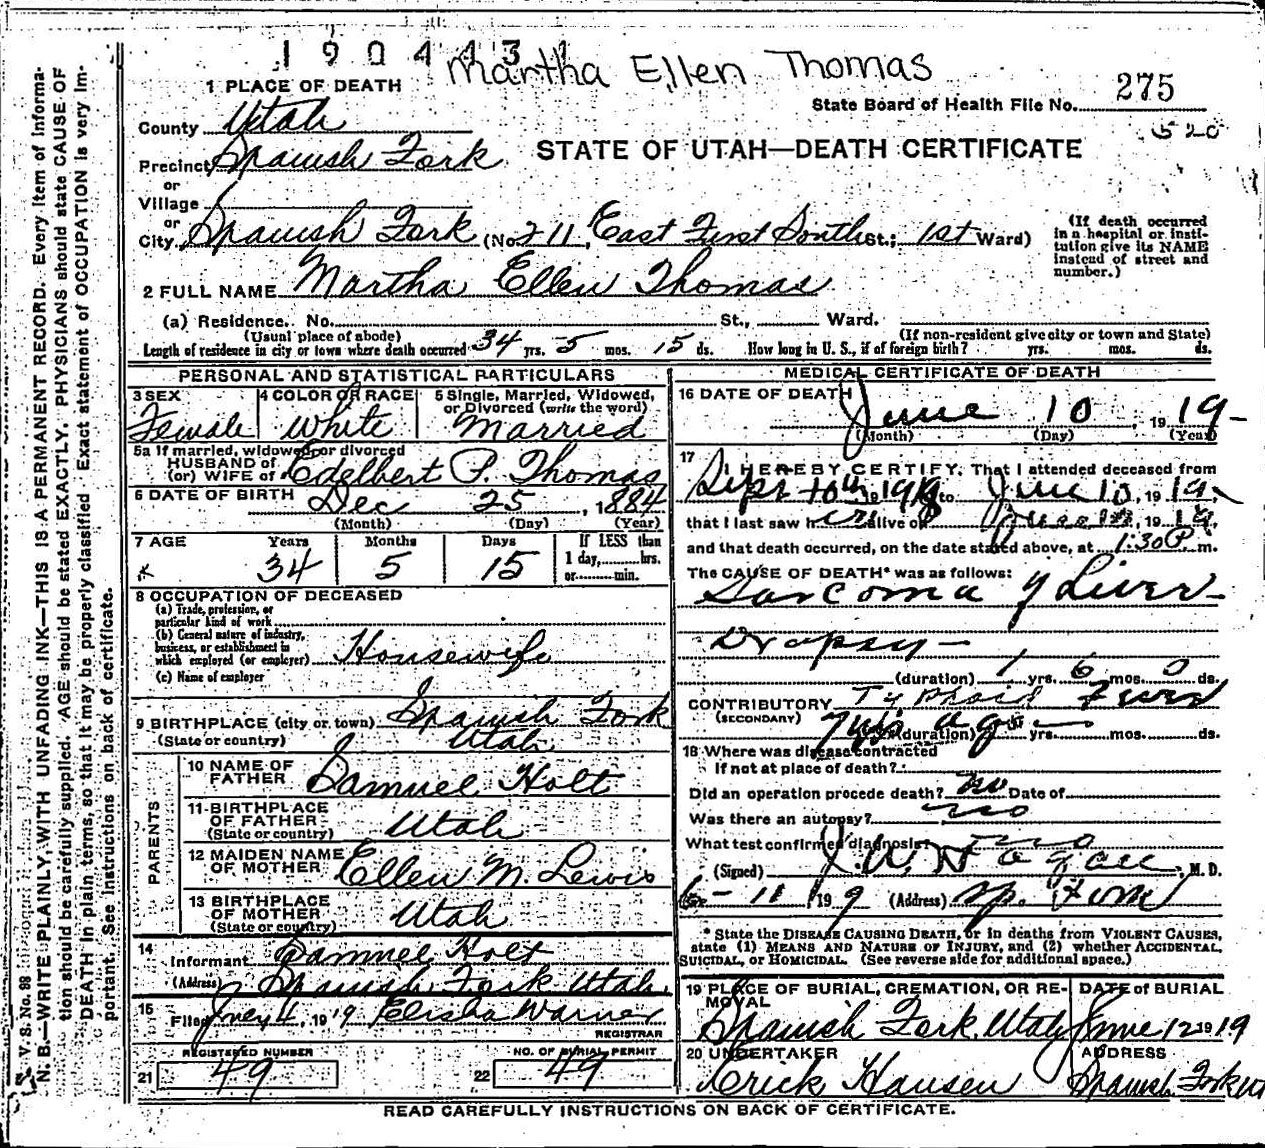 1904431
Martha Ellen Thomas
1 PLACE OF DEATH
State Board of Health File No. 275
520
County Utah
Precinct Spanish Fork
STATE OF UTAH—DEATH CERTIFICATE
or
Village
or
City. Spanish Fork (No. 211, East First South St.; 1st Ward)
(If death occurred in a hospital or institution give its NAME instead of street and number.)
2 FULL NAME Martha Ellen Thomas
(a) Residence. No. St., Ward.
(Usual place of abode) (If non-resident give city or town and State)
Length of residence in city or town where death occurred 34 yrs. 5 mos. 15 ds. How long in U. S., if of foreign birth? yrs. mos. ds.
PERSONAL AND STATISTICAL PARTICULARS
3 SEX 4 COLOR OR RACE 5 Single, Married, Widowed, or Divorced (write the word)
Female White Married
5a If married, widowed, or divorced
HUSBAND of
(or) WIFE of Edelbert P. Thomas
6 DATE OF BIRTH Dec 25, 1884
(Month) (Day) (Year)
7 AGE Years Months Days If LESS than
1 day, hrs.
or min.
34 5 15
8 OCCUPATION OF DECEASED
(a) Trade, profession, or
particular kind of work
(b) General nature of industry,
business, or establishment in
which employed (or employer) Housewife
(c) Name of employer
9 BIRTHPLACE (city or town) Spanish Fork
(State or country) Utah
PARENTS
10 NAME OF
FATHER Samuel Holt
11 BIRTHPLACE
OF FATHER
(State or country) Utah
12 MAIDEN NAME
OF MOTHER Ellen M. Lewis
13 BIRTHPLACE
OF MOTHER
(State or country) Utah
14
Informant Samuel Holt
(Address) Spanish Fork Utah.
15
Filed 4, 1919 Elisha Warner
REGISTRAR
REGISTERED NUMBER NO. OF BURIAL PERMIT
21 49 22 49
MEDICAL CERTIFICATE OF DEATH
16 DATE OF DEATH June 10, 1919-
(Month) (Day) (Year)
17 I HEREBY CERTIFY, That I attended deceased from
Sept 10th 1918 to June 10, 1919,
that I last saw her alive on June 10, 1919,
and that death occurred, on the date stated above, at 1:30 P. m.
The CAUSE OF DEATH* was as follows:
Sarcoma of Liver-
Dropsy-
(duration) 1 yrs. 6 mos. 0 ds.
CONTRIBUTORY Typhoid Fever
(SECONDARY) ago
(duration) yrs. mos. ds.
18 Where was disease contracted
If not at place of death?
Did an operation precede death? no Date of
Was there an autopsy? no
What test confirmed diagnosis? no
(Signed) J. W. Hagan, M. D.
6-11 1919 (Address) Sp. Fork
* State the DISEASE CAUSING DEATH, or in deaths from VIOLENT CAUSES,
state (1) MEANS AND NATURE OF INJURY, and (2) whether ACCIDENTAL,
SUICIDAL, or HOMICIDAL. (See reverse side for additional space.)
19 PLACE OF BURIAL, CREMATION, OR REMOVAL DATE of BURIAL
Spanish Fork, Utah June 12 1919
20 UNDERTAKER ADDRESS
Erick Hansen Spanish Fork Ut
READ CAREFULLY INSTRUCTIONS ON BACK OF CERTIFICATE.
V. S. No. 88
N. B.—WRITE PLAINLY, WITH UNFADING INK—THIS IS A PERMANENT RECORD. Every item of information should be carefully supplied. AGE should be stated EXACTLY. PHYSICIANS should state CAUSE OF DEATH in plain terms, so that it may be properly classified. Exact statement of OCCUPATION is very important. See instructions on back of certificate.